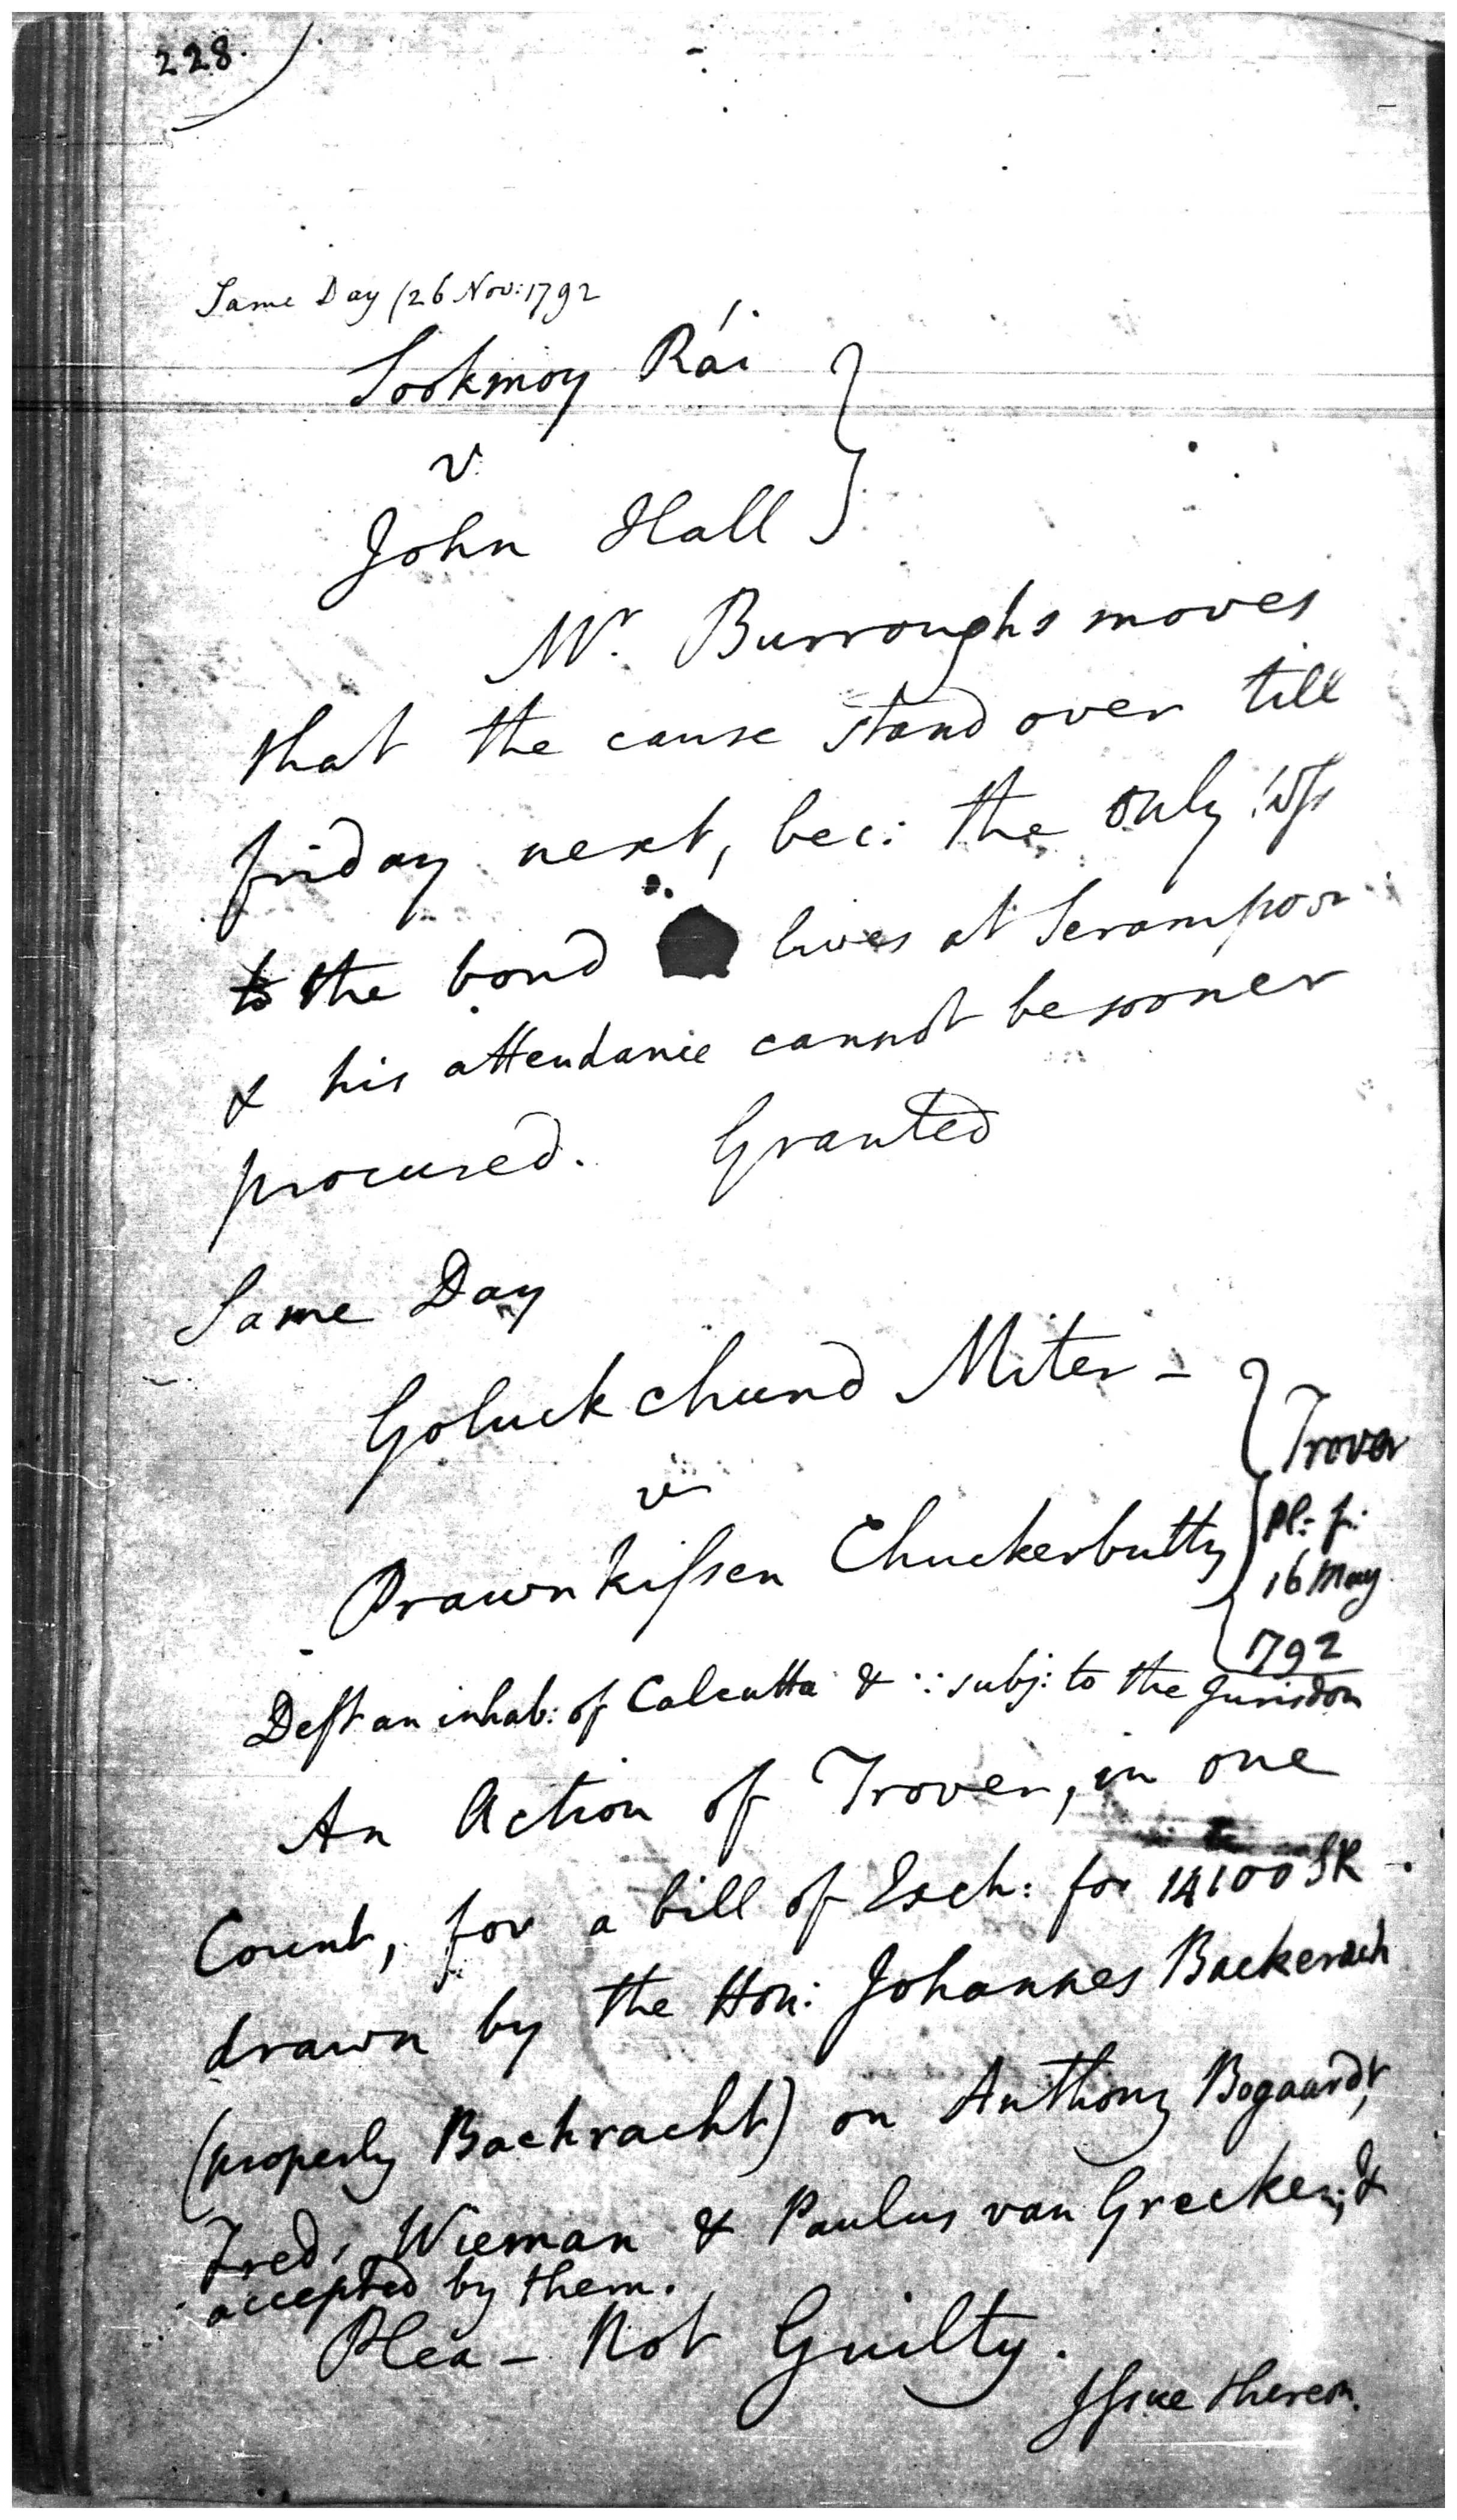 228.
Same Day (26 Nov: 1792
Sookmoy Rái
v.
John Hall
Mr. Burroughs moves
that the cause stand over till
friday next, bec: the only Wſs
to the bond lives at Serampoor
& his attendance cannot be sooner
procured. Granted
Same Day
Goluckchund Miter –
v.
Prawnkiſsen Chuckerbutty
Trover
Pl: f:
16 May
1792
Deft an inhab: of Calcutta & ∵ subj: to the Jurisdon
An Action of Trover, in one
Count, for a bill of Exch: for 14100 SR –
drawn by the Hon: Johannes Backerach
(properly Bachracht) on Anthony Bogaardt,
Fred. Wieman & Paulus van Grecken; &
accepted by them.
Plea – Not Guilty.
Iſsue thereon.